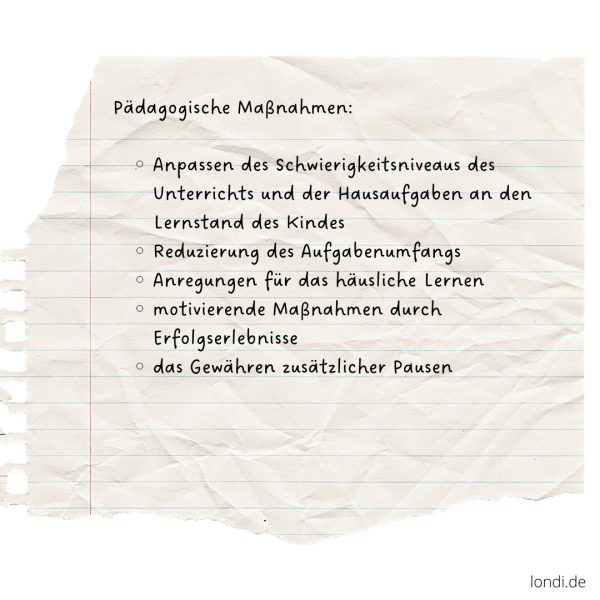 Pädagogische Maßnahmen:
○ Anpassen des Schwierigkeitsniveaus des
Unterrichts und der Hausaufgaben an den
Lernstand des Kindes
○ Reduzierung des Aufgabenumfangs
○ Anregungen für das häusliche Lernen
○ motivierende Maßnahmen durch
Erfolgserlebnisse
○ das Gewähren zusätzlicher Pausen
londi.de